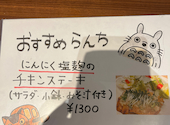 おすすめらんち
にんにく塩麹の
チキンステーキ
(サラダ・小鉢・みそ汁付き)
¥1300